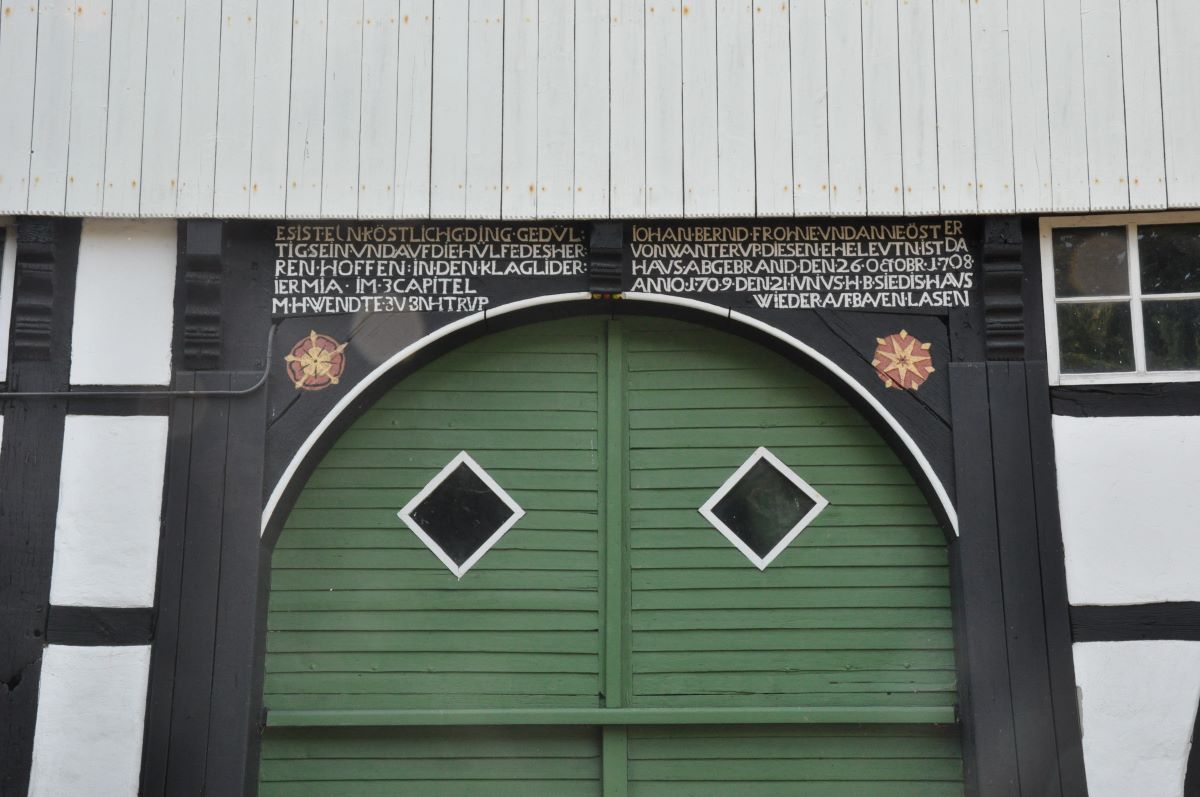 ES·IST·EIN·KÖSTLICHG·DING·GEDVL:
TIGSEINVNDAVFDIEHÜLFEDESHER
REN·HOFFEN:IN·DEN·KLAGLIDER:
IERMIA·IM·3CAPITEL
M·H·WENDTE·3V·BNHTRVP
IOHAN·BERND·FROHNE·VND·ANNE·ÖSTER
VONWANTERVP·DIESEN·EHELEVTN·IST DA
HAVSABGEBRAND·DEN·26·OCTOBR·1·708
ANNO·1·70·9·DEN·21·IVNIVS·H·B·SIEDISHAVS
WIEDER·AVF·BAVEN·LASEN